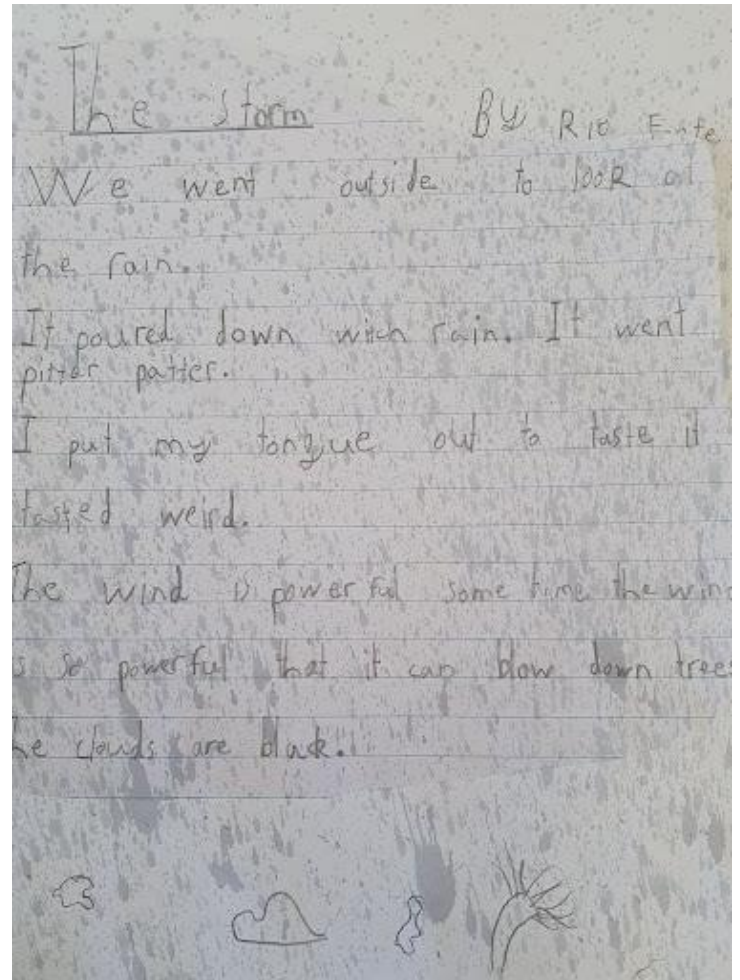 The storm
By Rio
We went outside to look at
the rain.
It poured down with rain. It went
pitter patter.
I put my tongue out to taste it
tasted weird.
The wind is powerful some time the wind
is so powerful that it can blow down trees
he clouds are black.